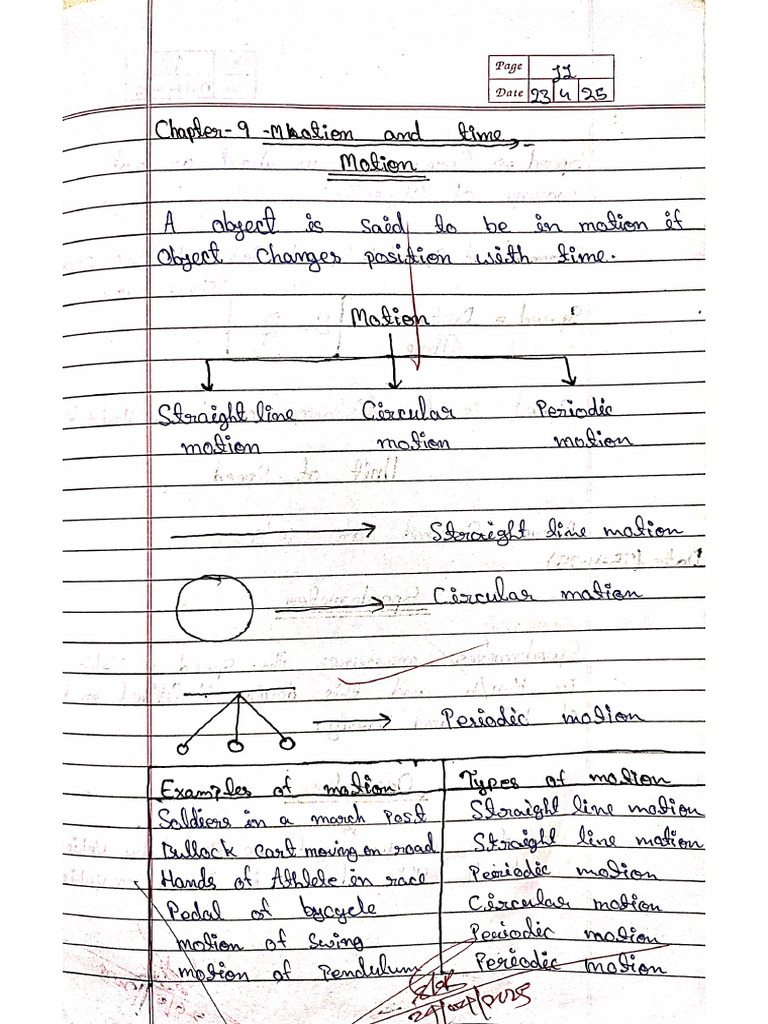 Page 11
Date 23 4 25
Chapter-9 - Motion and time
Motion
A object is said to be in motion if
object changes position with time.
Motion
Straight line Circular Periodic
motion motion motion
Straight line motion
Circular motion
Periodic motion
Examples of motion Types of motion
Soldiers in a march Past Straight line motion
Bullock cart moving on road Straight line motion
Hands of Athlete in race Periodic motion
Pedal of bycycle Circular motion
motion of Swing Periodic motion
motion of Pendulum Periodic motion
24/04/2025